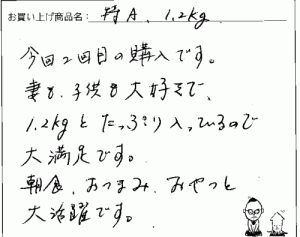 お買い上げ商品名： 特A、1.2kg
今回2回目の購入です。
妻も、子供も大好きで、
1.2kgとたっぷり入っているので
大満足です。
朝食、おつまみ、おやつと
大活躍です。